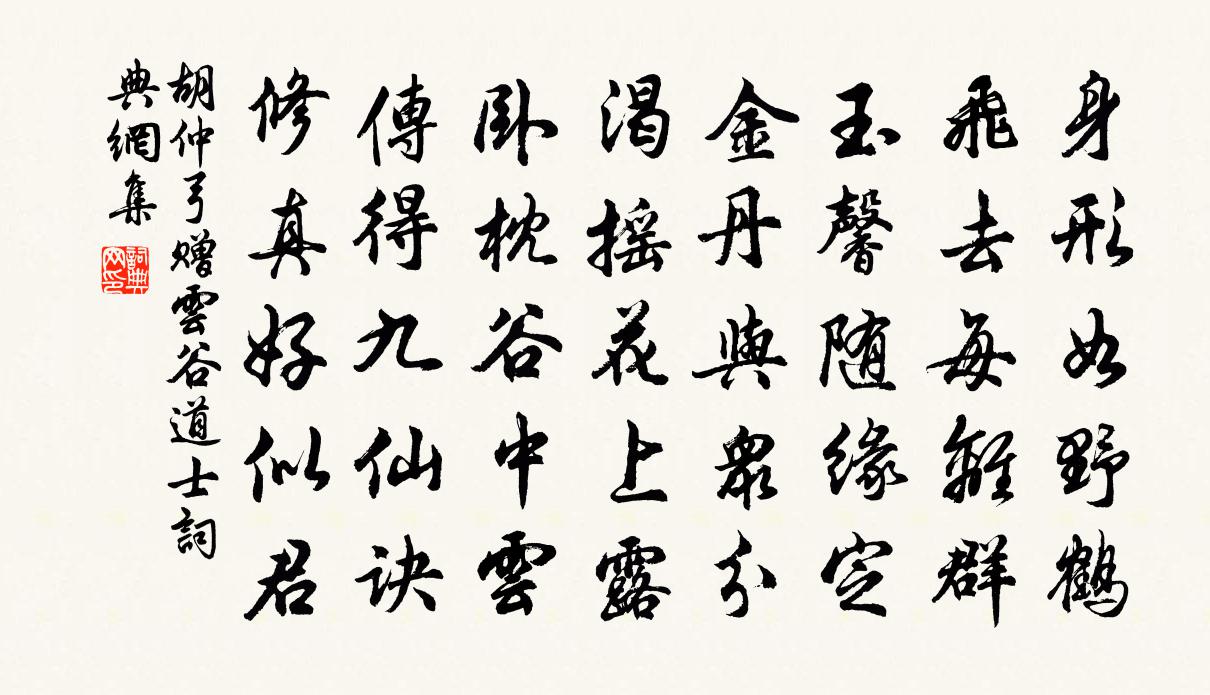 身形如野鶴
飛去每離群
玉馨随緣定
金丹與衆分
渴摇花上露
卧枕谷中雲
傳得九仙訣
修真好似君
胡仲弓贈雲谷道士詞
典網集
詞典
网印